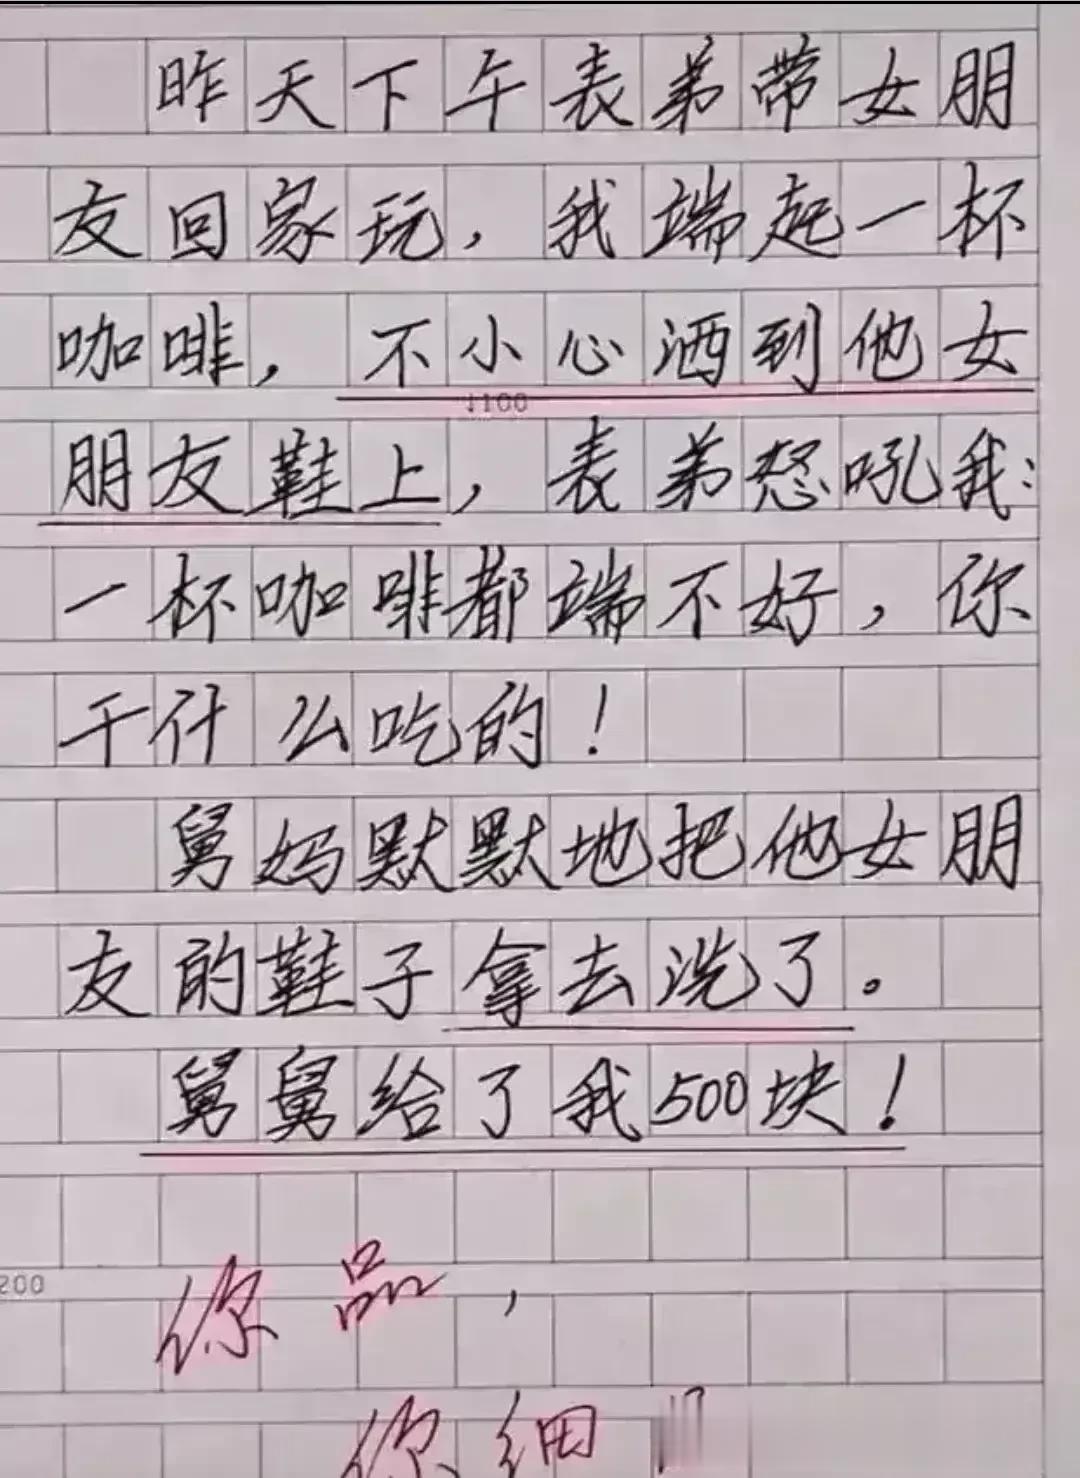 昨天下午表弟带女朋
友回家玩，我端起一杯
咖啡，不小心洒到他女
↓100
朋友鞋上，表弟怒吼我：
一杯咖啡都端不好，你
干什么吃的！
舅妈默默地把他女朋
友的鞋子拿去洗了。
舅舅给了我500块！
200
你品，
你细